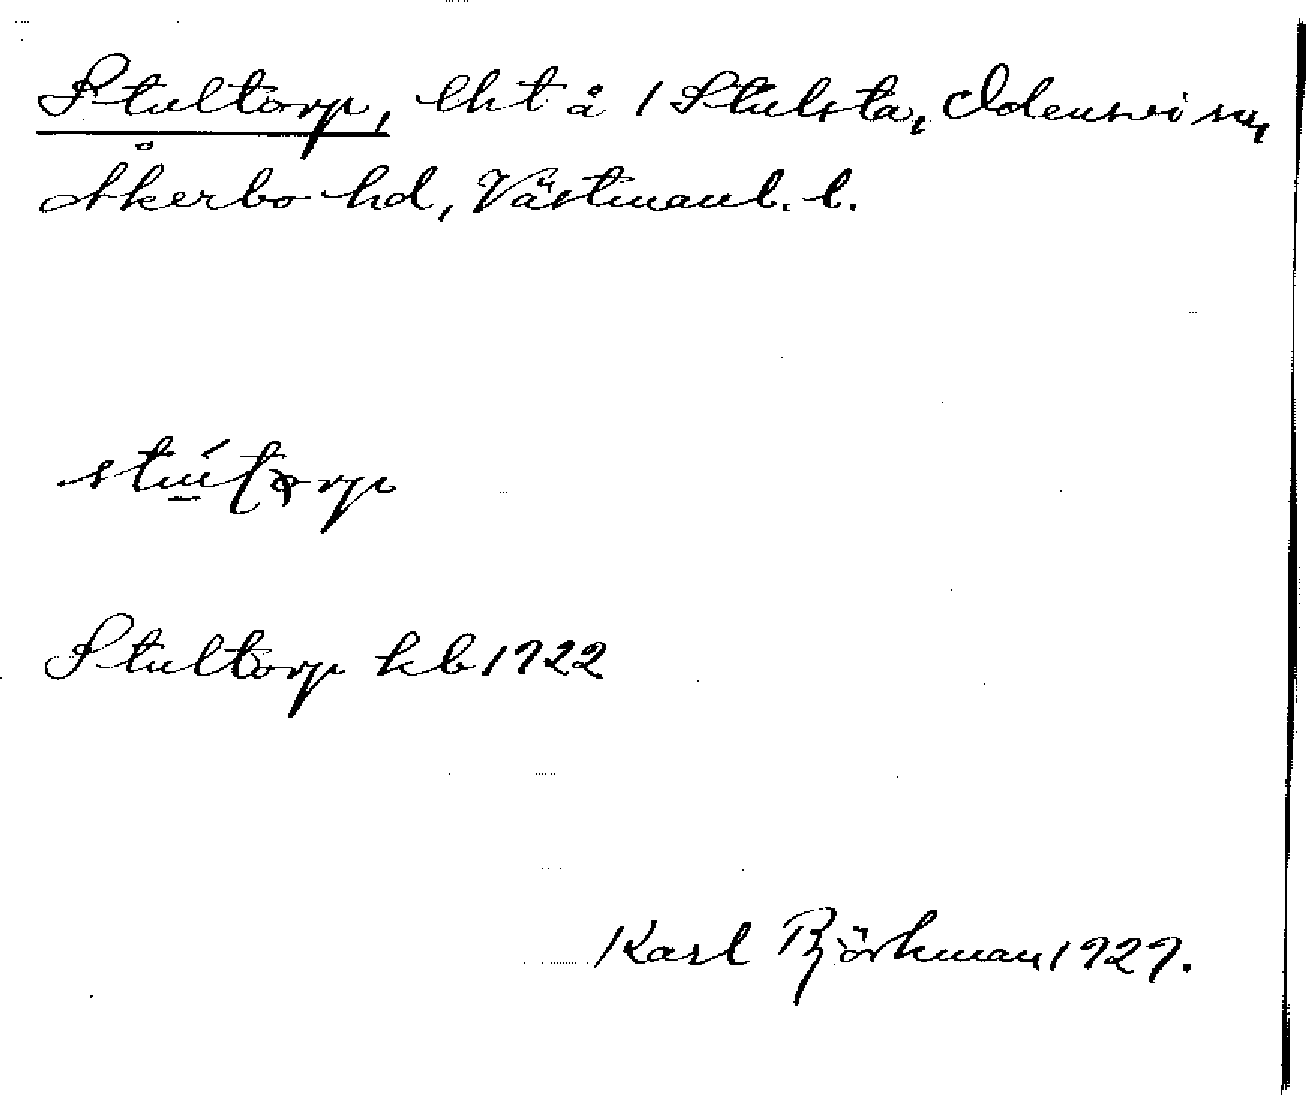 Stultorp, lht å 1 Stulsta, Odensvi sn,
Åkerbo hd, Västmanl. l.
Stultorp kb 1722
Karl Björkman 1929.